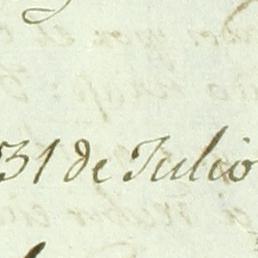 31 de Julio